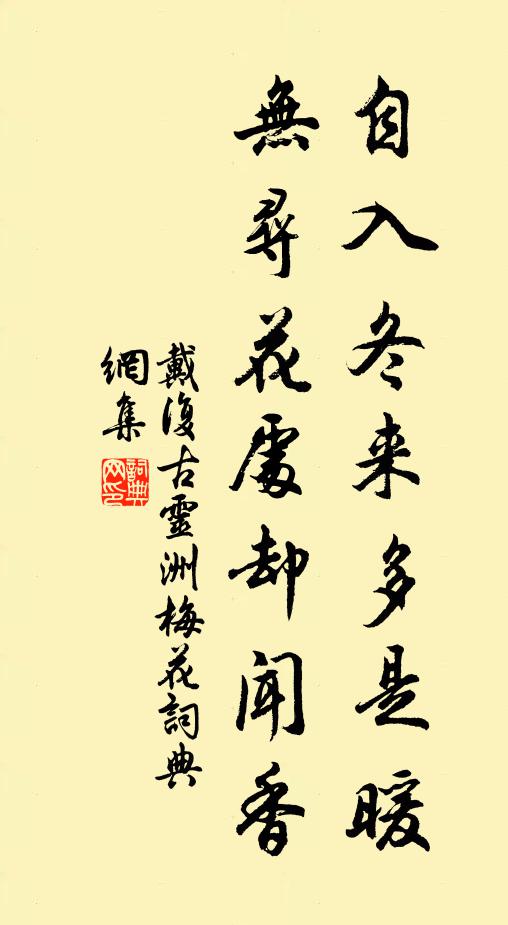 自入冬来多是暖
無尋花處却聞香
戴復古靈洲梅花詞典
網集
詞典
网印